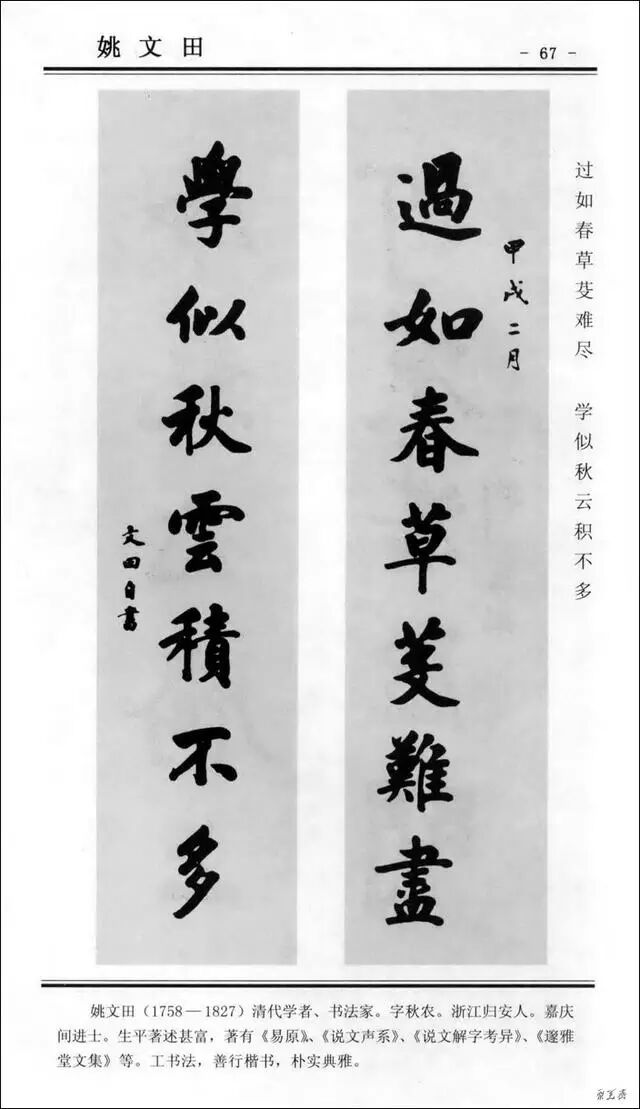 姚文田
- 67 -
过如春草芟难尽 学似秋云积不多
甲戌二月
過如春草芟難盡
學似秋雲積不多
文田自書
姚文田（1758—1827）清代学者、书法家。字秋农。浙江归安人。嘉庆
间进士。生平著述甚富，著有《易原》、《说文声系》、《说文解字考异》、《邃雅
堂文集》等。工书法，善行楷书，朴实典雅。